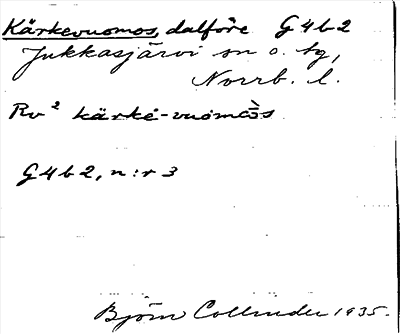 Kärkevuomos, dalföre G4b2
Jukkasjärvi sn o. tg,
Norrb. l.
Rv² kärkè-vuomòs
G4b2, n:r 3
Björn Collinder 1935.